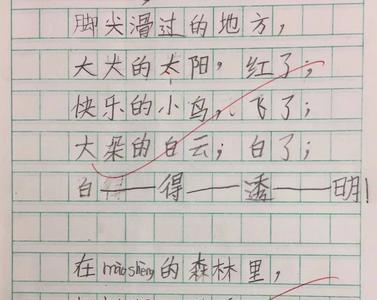 脚尖滑过的地方，
大大的太阳，红了；
快乐的小鸟，飞了；
大朵的白云；白了；
白——得——透——明！
在mào shèng的森林里，